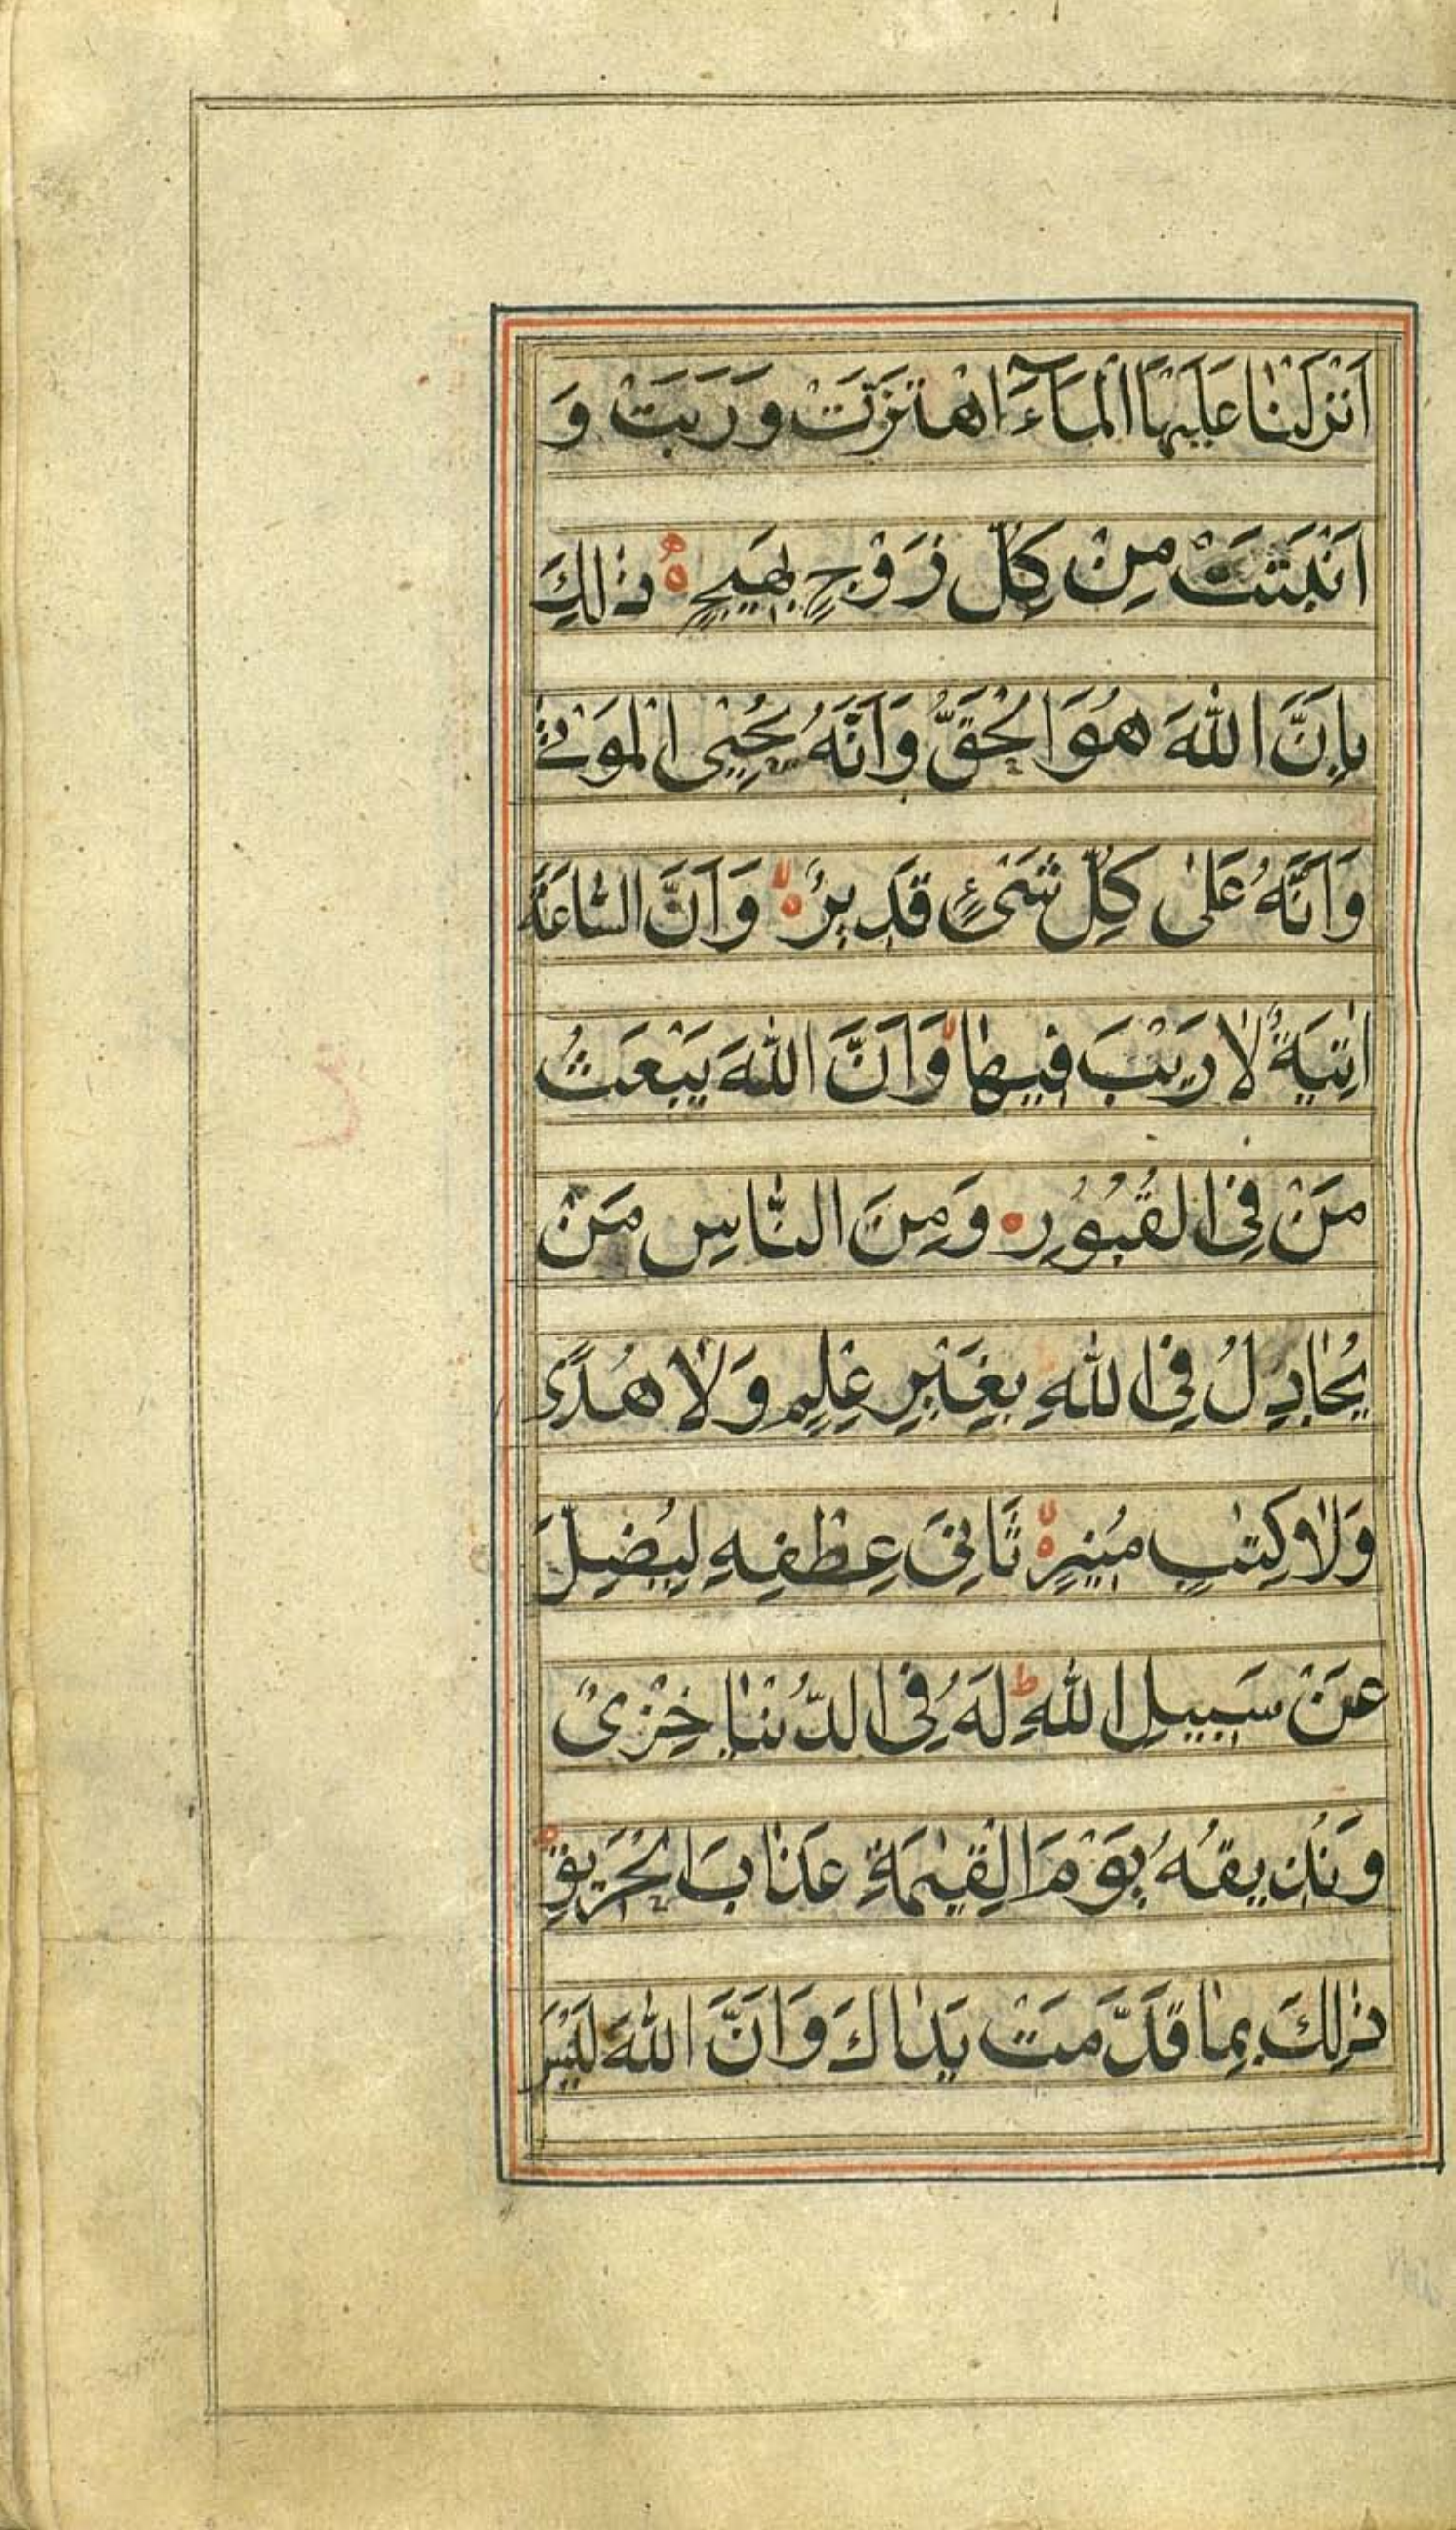 اَنْزَلْنٰا عَلَيْهَا الْمَآءَ اهْتَزَّتْ وَرَبَتْ وَ
اَنْبَتَتْ مِنْ كُلِّ زَوْجٍ بَهِيجٍ ه ذٰلِكَ
بِاَنَّ اللّٰهَ هُوَ الْحَقُّ وَاَنَّهُ يُحْيِي الْمَوْتٰى
وَاَنَّهُ عَلٰى كُلِّ شَىْءٍ قَدِيرٌ لا ه وَاَنَّ السّٰاعَةَ
اٰتِيَةٌ لٰا رَيْبَ فِيهٰا لا وَاَنَّ اللّٰهَ يَبْعَثُ
مَنْ فِى الْقُبُورِ وَمِنَ النّٰاسِ مَنْ
يُجٰادِلُ فِى اللّٰهِ بِغَيْرِ عِلْمٍ وَلٰا هُدًى
وَلٰا كِتٰبٍ مُنِيرٍ لا ه ثَانِىَ عِطْفِهِ لِيُضِلَّ
عَنْ سَبِيلِ اللّٰهِ ط لَهُ فِى الدُّنْيٰا خِزْىٌ
وَنُذِيقُهُ يَوْمَ الْقِيٰمَةِ عَذٰابَ الْحَرِيقِ ه
ذٰلِكَ بِمٰا قَدَّمَتْ يَدٰاكَ وَاَنَّ اللّٰهَ لَيْسَ